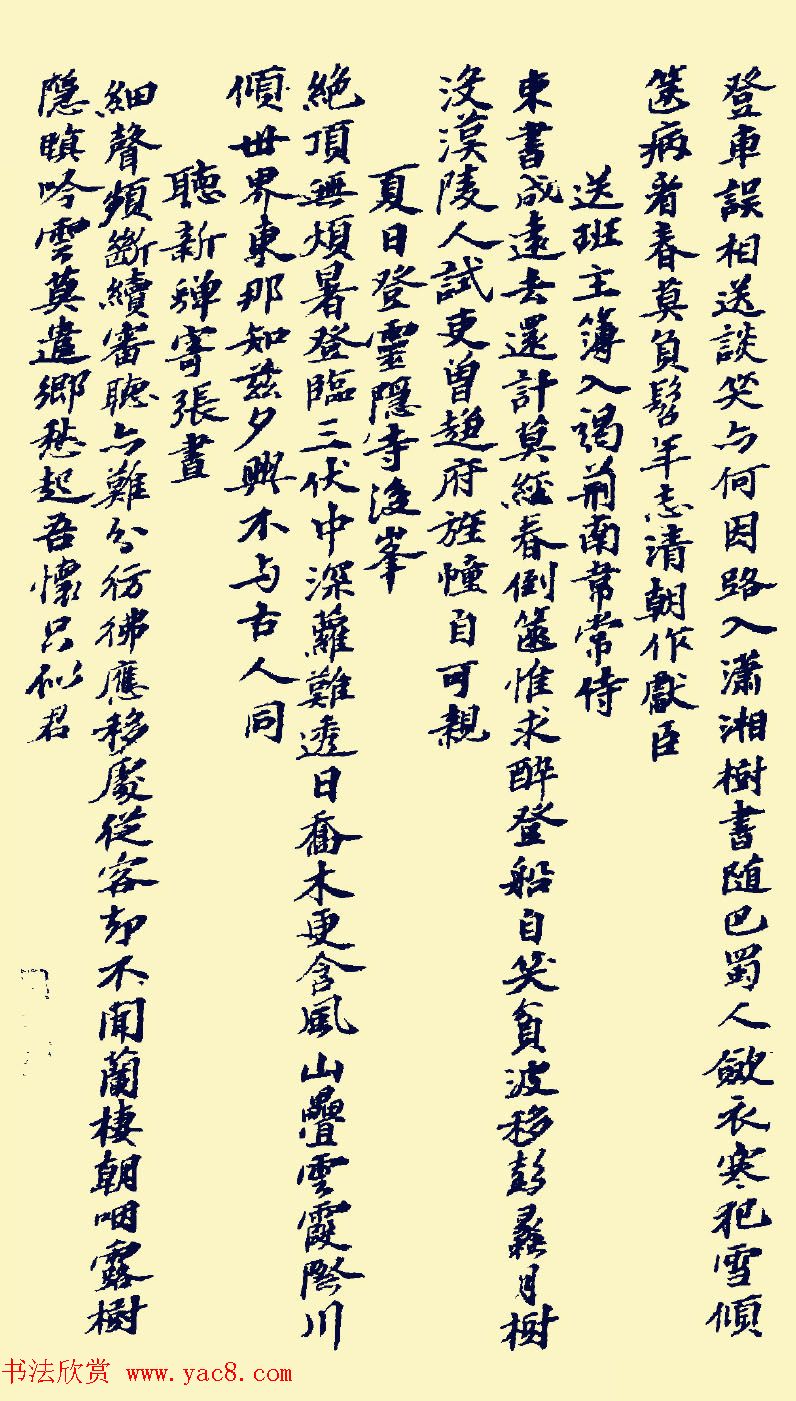 登車誤相送談笑亦何因路入瀟湘樹書随巴蜀人斂衣寒犯雪傾
篋病看春莫負髫年志清朝作獻臣
送班主簿入謁荊南韋常侍
東書成遠去還計莫經春倒篋惟求醉登船自笑貧波移彭蠡月樹
没漢陵人試吏曾趨府旌幢自可親
夏日登靈隱寺後峯
絶頂無煩暑登臨三伏中深蘿難透日喬木更含風山疊雲霞際川
傾世界東那知茲夕興不与古人同
聽新蟬寄張晝
細聲頻斷續審聽亦難分彷彿應移處從容却不聞蘭棲朝咽露樹
隱暝吟雲莫遣鄉愁起吾懷只似君
书法欣赏 www.yac8.com